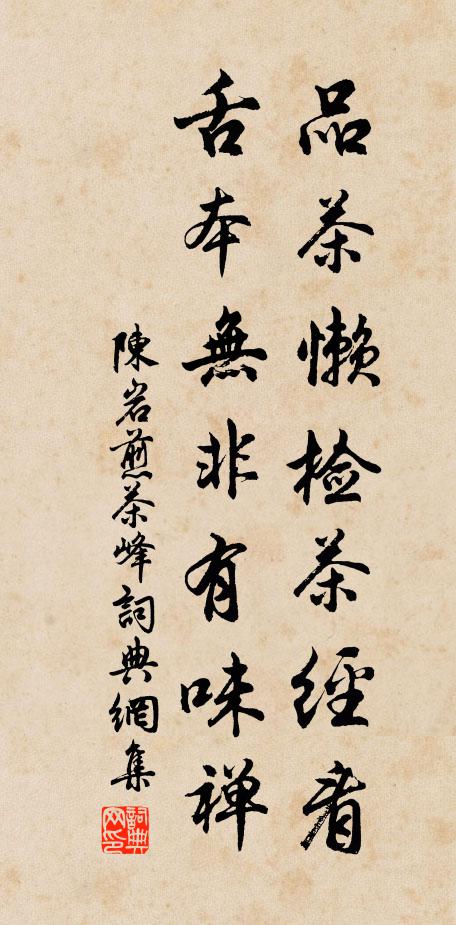 品茶懒检茶经看
舌本無非有味禅
陳岩煎茶峰詞典網集
詞典网印